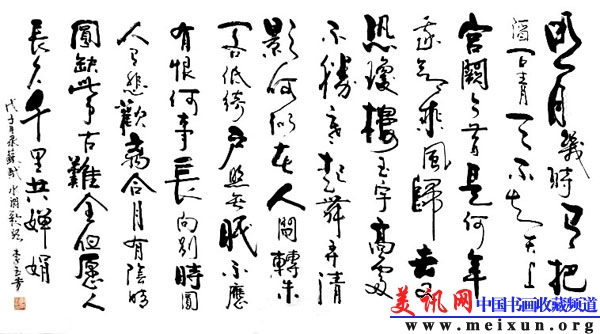 明月幾時有把
酒问青天不知天上
宫闕今昔是何年
我欲乘風歸去又
恐瓊樓玉宇高處
不勝寒起舞弄清
影何似在人間轉朱
閣低綺户照無眠不應
有恨何事長向别時圓
人有悲歡離合月有陰晴
圓缺此事古難全但愿人
長久千里共嬋娟
戊子年录蘇軾水调歌頭
美讯网 中国书画收藏频道
www.meixun.org